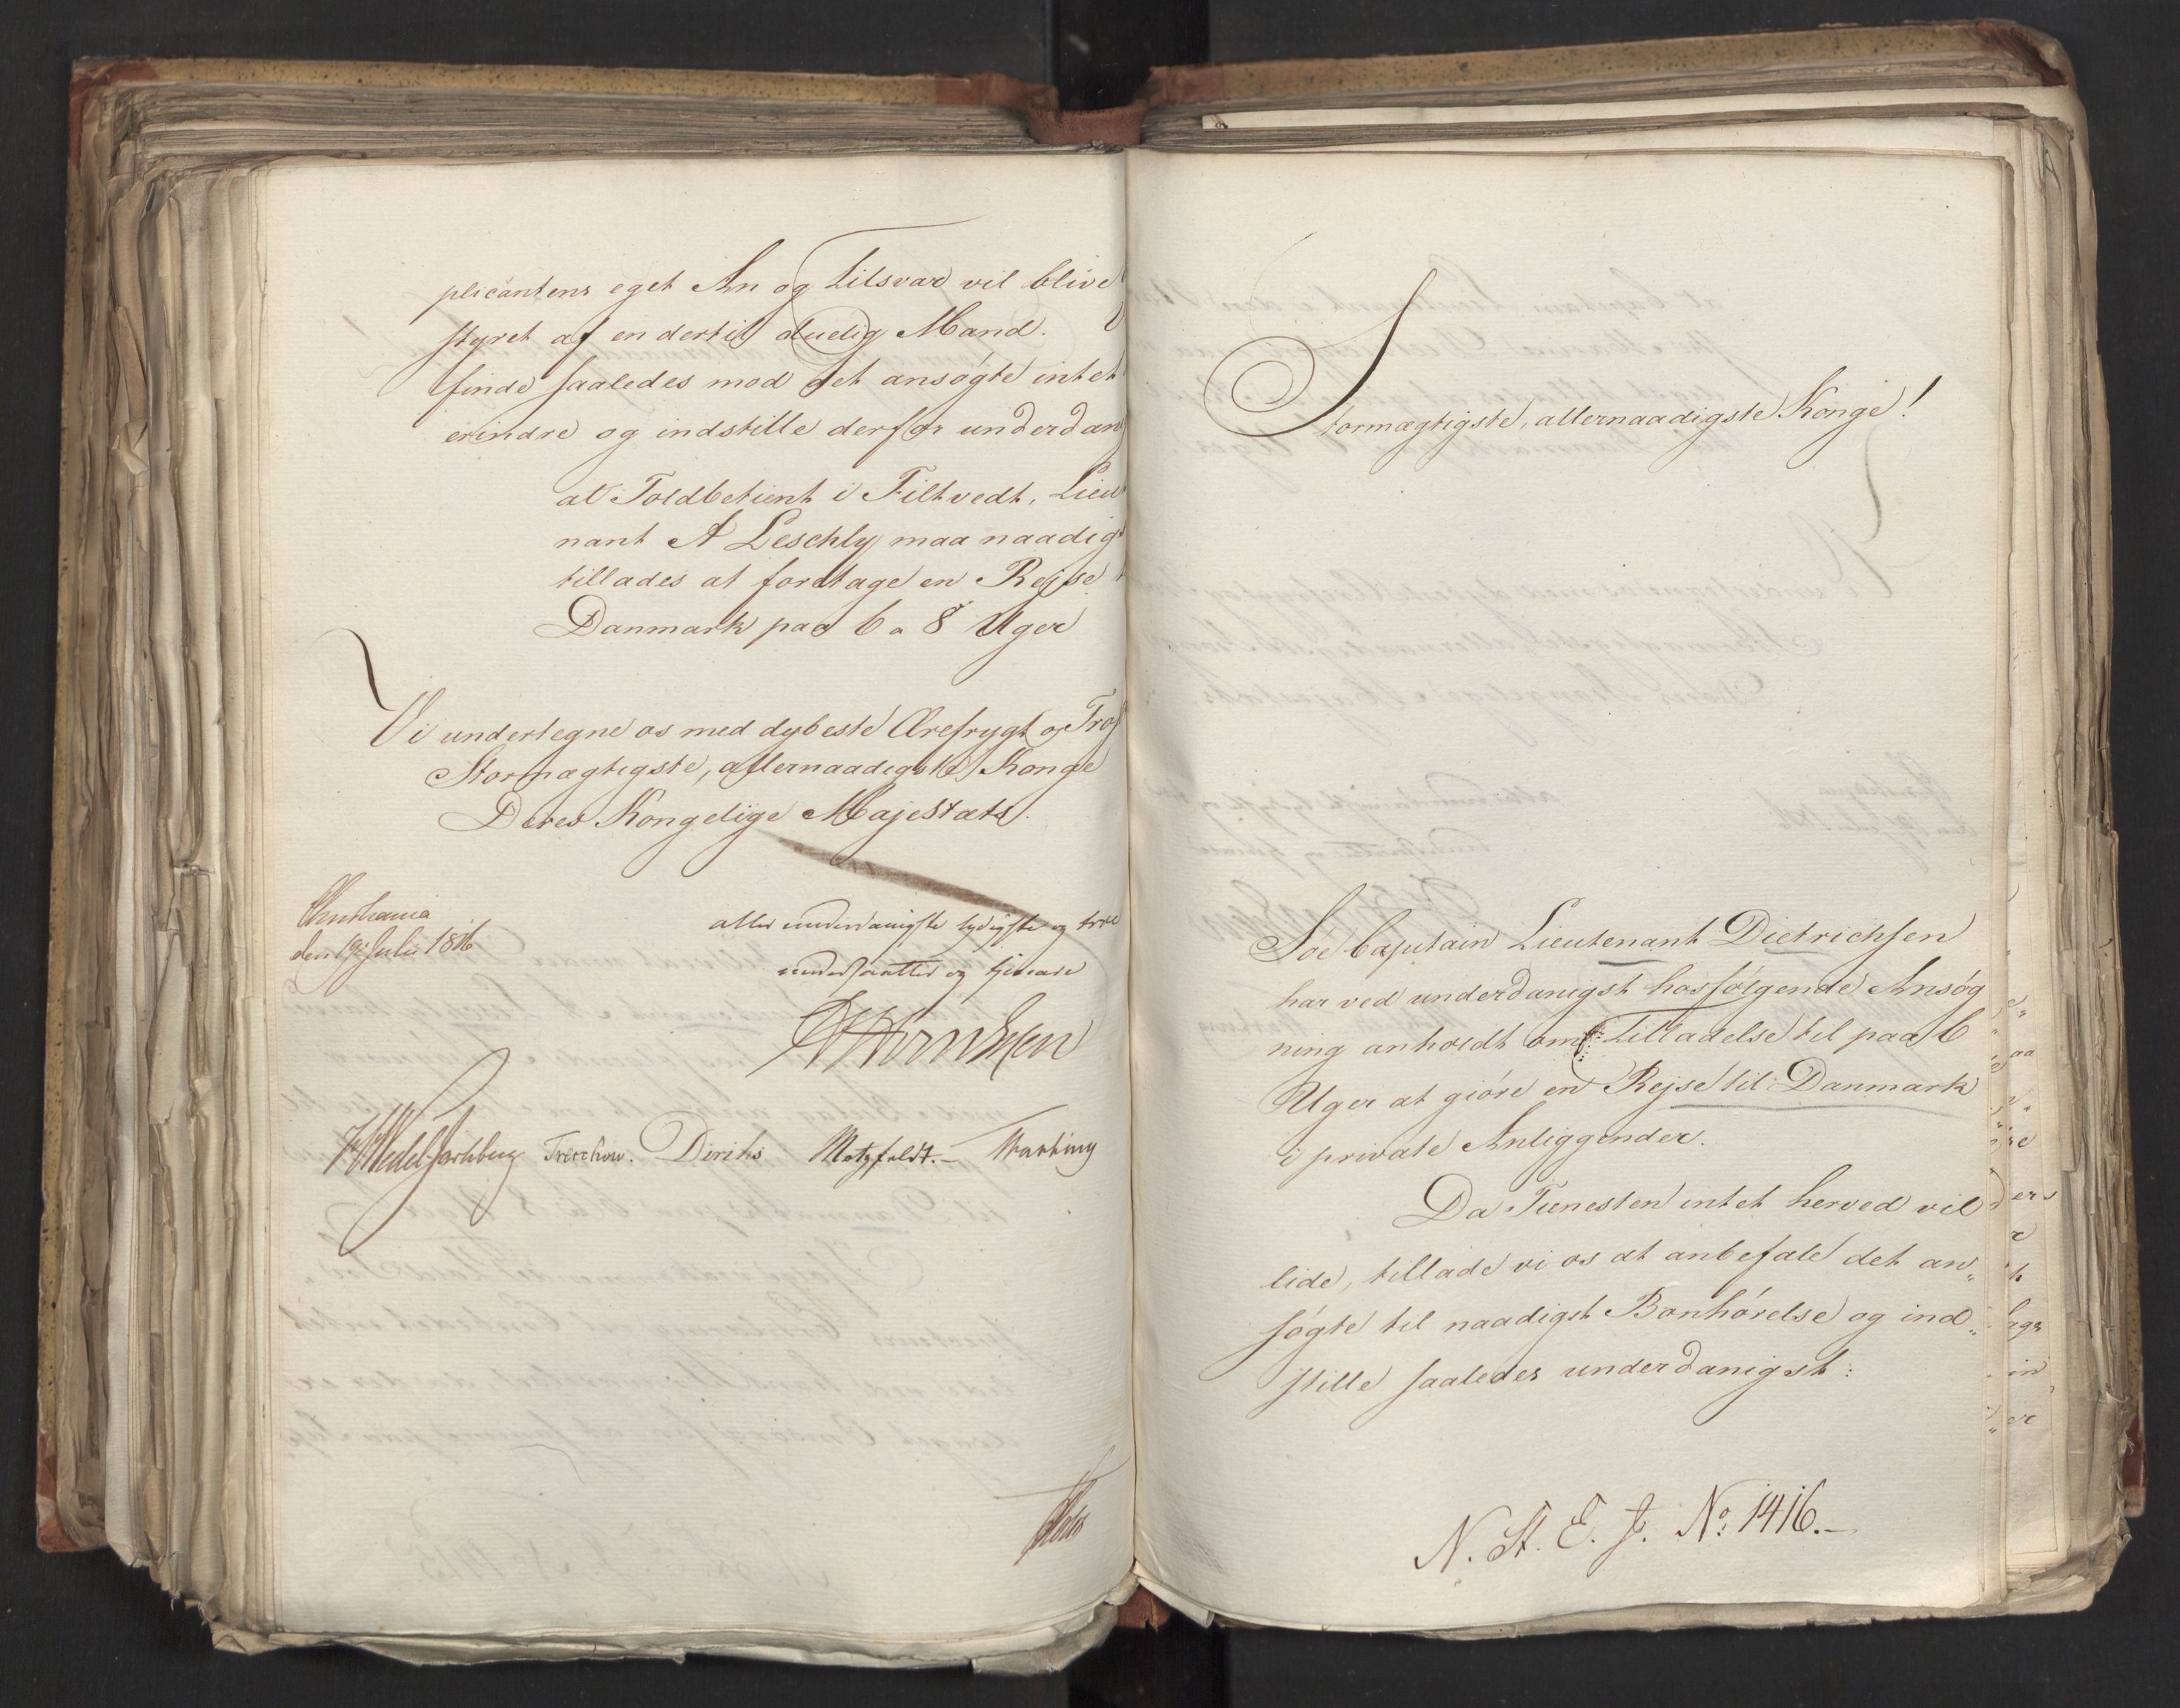 plicantens eget An og Tilsvar vil blive
styret af en dertil duelig Mand.
finde saaledes mod det ansøgte intet
erindre og indstille derfor underdan
at Toldbetient i Filtvedt, Lieu
nant A Leschly maa naadigs
tillades at foretage en Rejse
Danmark paa 6 a 8 Uger
Vi undertegne os med dybeste Ærefrygt og Tro
Stormægtigste, allernaadigste Konge
Deres Kongelige Majestæts.
Christiania
den 19de Julii 1816
aller underdanigste lydigste og troe
undersaatter og tjenere
H Wedel Jarlsberg Treschow. Diriks Motzfeldt.-
Stormægtigste, allernaadigste Konge!
Søe Capitain Lieutenant Dietrichsen
har ved underdanigst hosfølgende Ansøg
ning anholdt om Tilladelse til paa 6
Uger at giøre en Rejse til Danmark
i private Anliggender.
Da Tienesten intet herved vil
lide, tillade vi os at anbefale det an„
søgte til naadigst Bønhørelse og ind„
stille saaledes underdanigst:
N. St. E. J. No: 1416.-